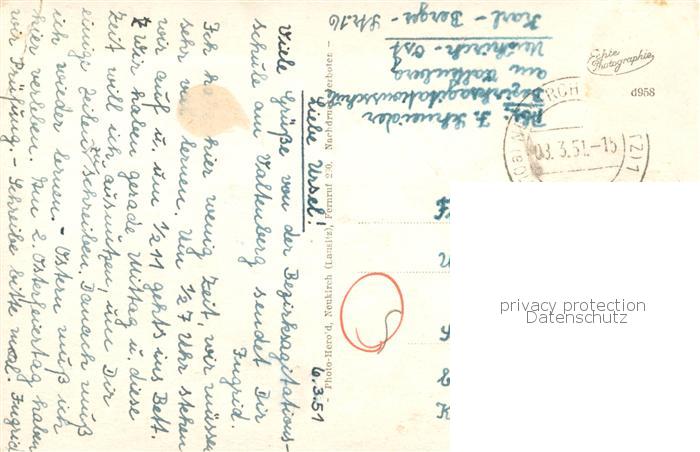 6.3.51
Liebe Ursel!
Viele Grüße von der Bezirksagitations-
schule am Valtenberg sendet Dir
Ingrid.
Ich hier wenig Zeit, wir müssen
sehr lernen. Um 1/2 7 Uhr stehen
wir auf u. um 1/2 11 gehts ins Bett.
Wir haben gerade Mittag u. diese
Zeit will ich ausnützen, um Dir
einige Zeilen zu schreiben. Danach muß
ich wieder lernen. - Ostern muß ich
hier verleben. Am 2. Osterfeiertag haben
wir Prüfung. - Schreibe bitte mal. Ingrid
- Photo-Herold, Neukirch (Lausitz), Fernruf 230. Nachdruck verboten -
Abs. J. Schneider
Bezirksagitationsschule
am Valtenberg
Neukirch-Ost
Karl-Berger-Str. 16
Echte
Photographie
d958
03.3.51.-15
privacy protection
Datenschutz